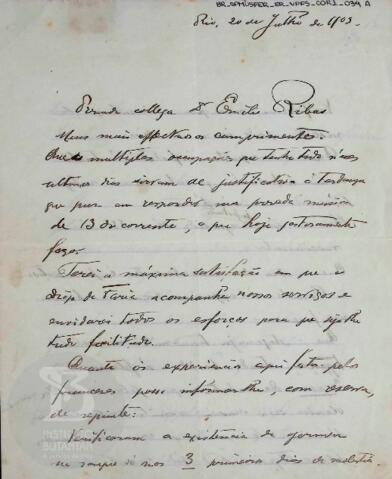 BR-SPMUSPER-ER-VPPS-COR1-034 A
Rio, 20 de Julho de 1903.
Prezado collega Dr Emilio Ribas
Meus mais affectuosos comprimentos.
multiplas occupações que tenho tido n'esses
ultimos dias sirvam de justificativa á tardança
que puz em responder sua prezada missiva
de 13 do corrente, o que hoje gostosamente
faço.
Terei a máxima satisfação em que o
de Faria acompanhe nossos serviços e
envidarei todos os esforços para que
tudo facilitado.
Quanto as experiencias aqui feitas pelos
francezes posso informar-lhe, com reserva,
do seguinte:
Verificaram a existencia do germen
no sangue só nos 3 primeiros dias de molestia
INSTITUTO
BUTANTAN